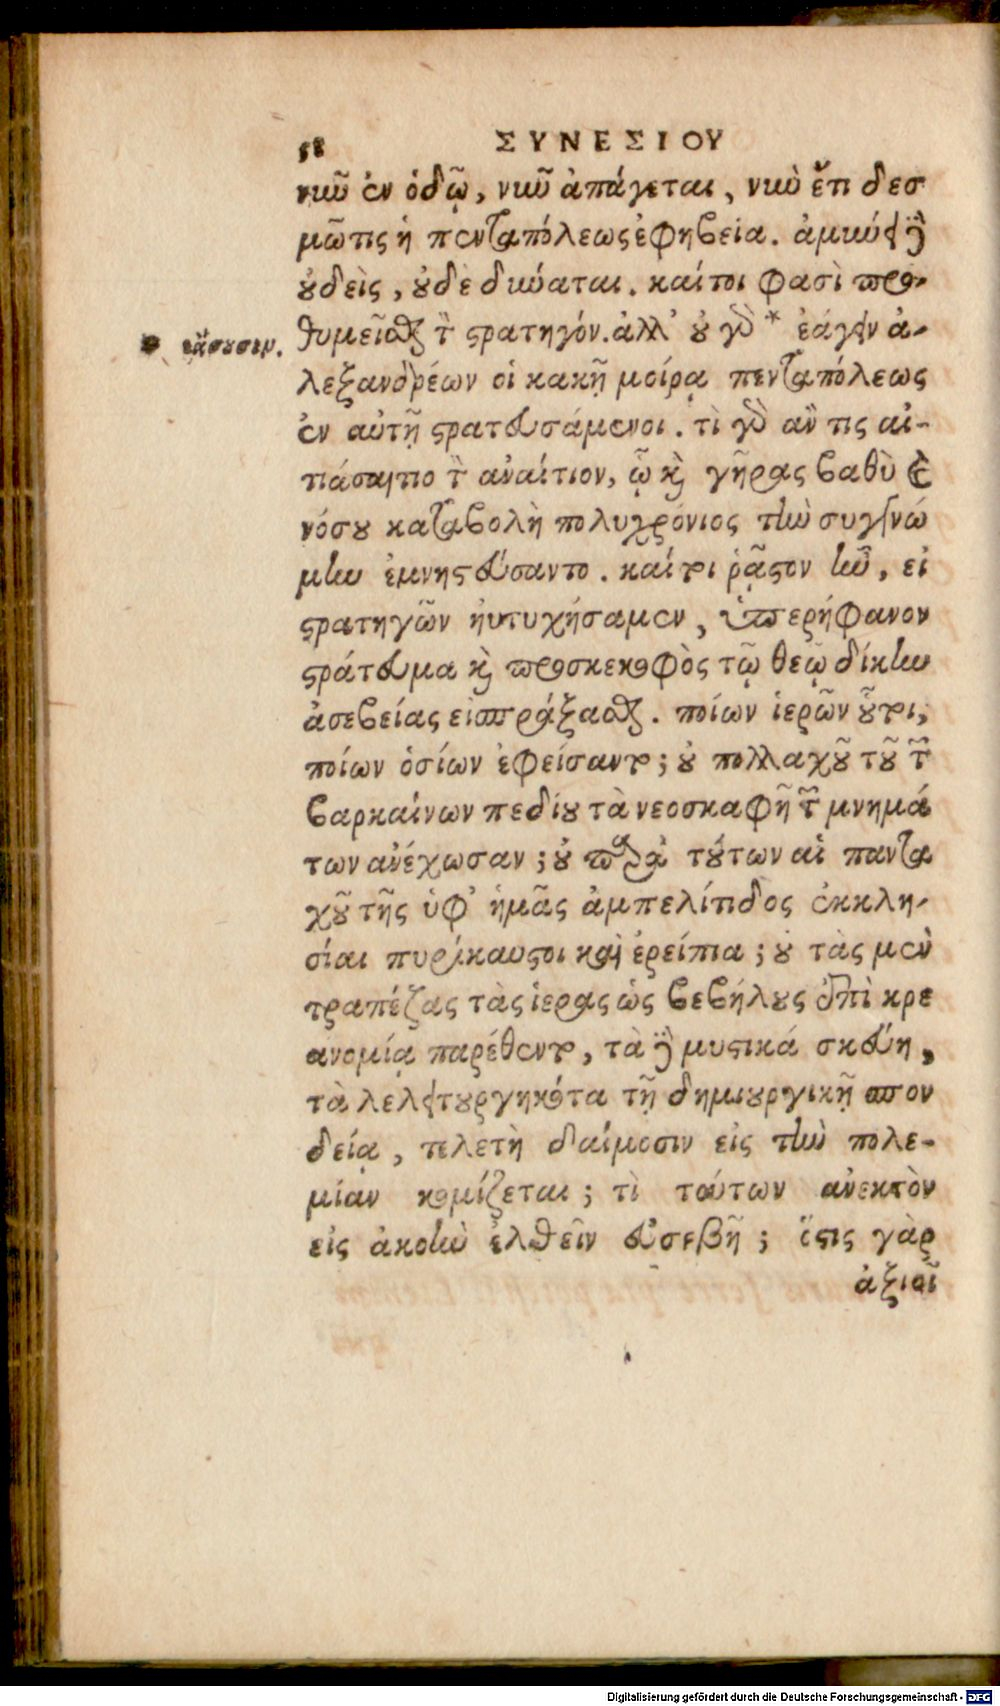 58 ΣΥΝΕΣΙΟΥ
νῦν ἐν ὁδῷ, νῦν ἀπάγεται, νὺν ἔτι δεσ
μῶτις ἡ πενταπόλεως ἐφηβεία. ἀμύνει δὲ
οὐδεὶς, οὐδὲ δύναται. καίτοι φασὶ προ-
θυμεῖσθαι τὸν στρατηγόν. ἀλλ' οὐ γὰρ * ἐάγειν ἀ-
* ἐάσουσιν.
λεξανδρέων οἱ κακῇ μοίρᾳ πενταπόλεως
ἐν αὐτῇ στρατευσάμενοι. τὶ γὰρ ἄν τις αἰ-
τιάσαιτο τὸν ἀναίτιον, ᾧ καὶ γῆρας βαθὺ καὶ
νόσου καταβολὴ πολυχρόνιος τὴν συγγνώ
μην ἐμνηστεύσαντο. καίτοι ῥᾷστον ἦν, εἰ
στρατηγῶν ηὐτυχήσαμεν, ὑπερήφανον
στράτευμα καὶ προσκεκοφὸς τῷ θεῷ δίκην
ἀσεβείας εἰσπράξασθαι. ποίων ἱερῶν οὗτοι,
ποίων ὁσίων ἐφείσαντο; οὐ πολλαχοῦ τοῦ τῶν
βαρκαίνων πεδίου τὰ νεοσκαφῆ τῶν μνημά
των ἀνέχωσαν; οὐ παρὰ τούτων αἱ παντα
χοῦ τῆς ὑφ' ἡμᾶς ἀμπελίτιδος ἐκκλη-
σίαι πυρίκαυστοι καὶ ἐρείπια; οὐ τὰς μὲν
τραπέζας τὰς ἱερὰς ὡς βεβήλους ἐπὶ κρε
ανομίᾳ παρέθεντο, τὰ δὲ μυστικά σκεύη,
τὰ λελειτουργηκότα τῇ δημιουργικῇ σπον
δείᾳ, τελετὴ δαίμοσιν εἰς τὴν πολε-
μίαν κομίζεται; τὶ τούτων ἀνεκτὸν
εἰς ἀκοὴν ἐλθεῖν εὐσεβῆ; ὅστις γὰρ
ἀξιοῖ
Digitalisierung gefördert durch die Deutsche Forschungsgemeinschaft - DFG